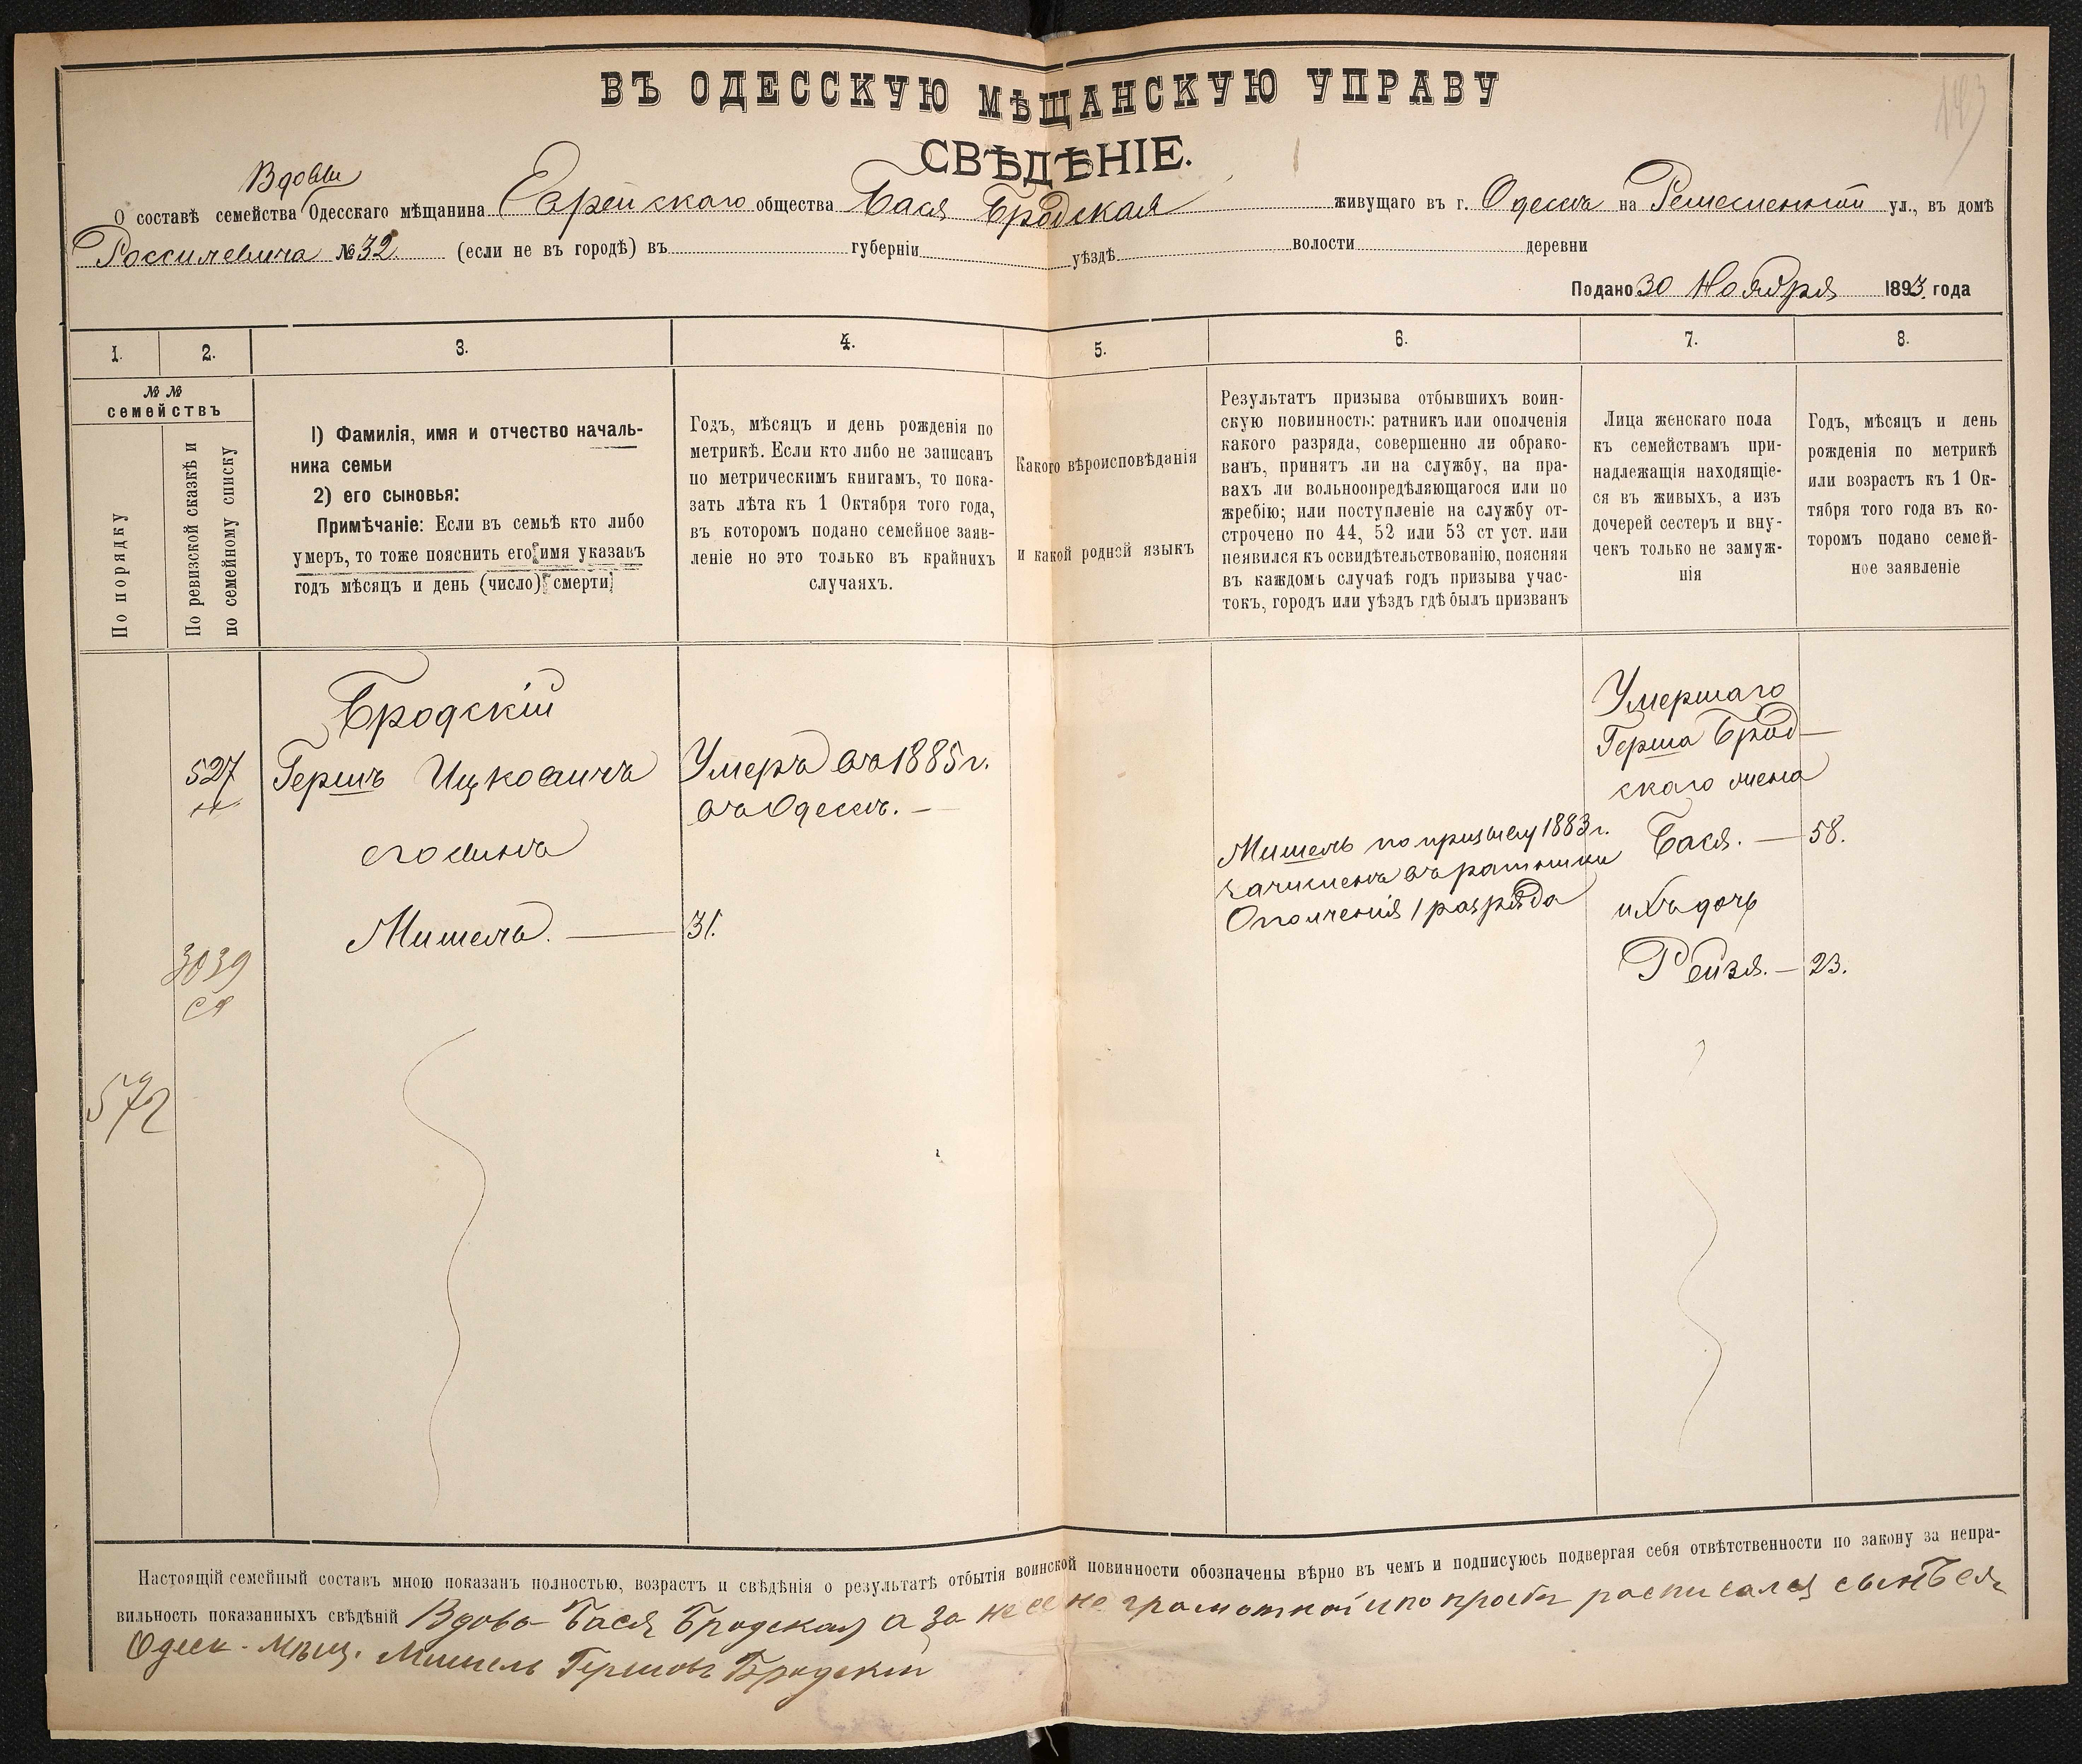 143
ВЪ ОДЕССКУЮ МѢЩАНСКУЮ УПРАВУ
СВѢДѢНІЕ.
Вдовы
О составѣ семейства Одесскаго мѣщанина Еврейскаго общества Бася Бродская живущаго въ г. Одессѣ на Ремесленной ул., въ домѣ
№ 32. (если не въ городѣ) въ губерніи уѣздѣ волости деревни
Подано 30 Ноября 1893 года
1. 2. 3. 4. 5. 6. 7. 8.
№ №
семействъ
По порядку
По ревизской сказкѣ и
по семейному списку
1) Фамилія, имя и отчество началь-
ника семьи
2) его сыновья:
Примѣчаніе: Если въ семьѣ кто либо
умеръ, то тоже пояснить его имя указавъ
годъ мѣсяцъ и день (число) смерти
Годъ, мѣсяцъ и день рожденія по
метрикѣ. Если кто либо не записанъ
по метрическимъ книгамъ, то пока-
зать лѣта къ 1 Октября того года,
въ которомъ подано семейное заяв-
леніе но это только въ крайнихъ
случаяхъ.
Какого вѣроисповѣданія
и какой родной языкъ
Результатъ призыва отбывшихъ воин-
скую повинность: ратникъ или ополченія
какого разряда, совершенно ли обрако-
ванъ, принятъ ли на службу, на пра-
вахъ ли вольноопредѣляющагося или по
жребію; или поступленіе на службу от-
строчено по 44, 52 или 53 ст уст. или
неявился къ освидѣтельствованію, поясняя
въ каждомъ случаѣ годъ призыва учас-
токъ, городъ или уѣздъ гдѣ былъ призванъ
Лица женскаго пола
къ семействамъ при-
надлежащія находящіе-
ся въ живыхъ, а изъ
дочерей сестеръ и вну-
чекъ только не замуж-
нія
Годъ, мѣсяцъ и день
рожденія по метрикѣ
или возрастъ къ 1 Ок-
тября того года въ ко-
торомъ подано семей-
ное заявленіе
Бродскій
527
Гершъ Ицковичъ
Умеръ въ 1885 г.
въ Одессѣ. —
его сынъ
Мишель. — 31.
3039
572
Мишель по призыву 1883 г.
зачисленъ въ ратники
Ополченія 1 разряда
Умершаго
Герша Брод-
скаго жена
Бася. — 58.
ихъ дочь
Рейзя. — 23.
Настоящій семейный составъ мною показанъ полностью, возрастъ и свѣдѣнія о результатѣ отбытія воинской повинности обозначены вѣрно въ чемъ и подписуюсь подвергая себя отвѣтственности по закону за непра-
вильность показанныхъ свѣдѣній Вдова Бася Бродская а за нее не грамотной и по просьбѣ росписался сынъ
Одесс. Мѣщ. Мишель Гершовъ Бродскій